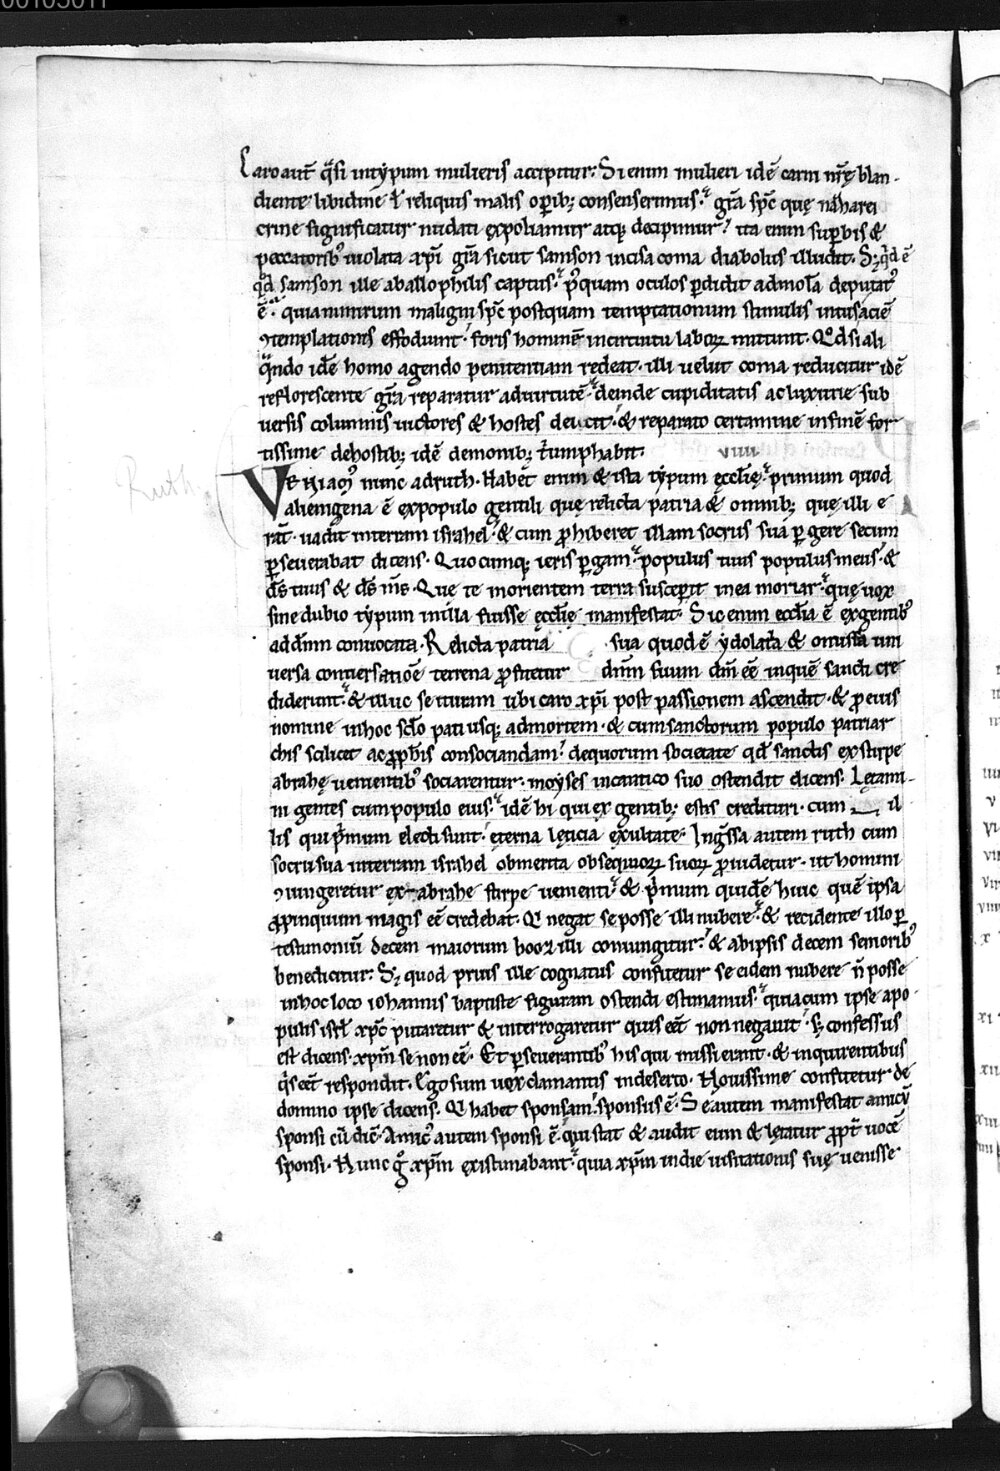 Caro aut̄ q̄si in typum mulieris accipitur. Si enim mulieri idē carni nr̄ę blan-
diente libidine ł reliquis malis oꝑib; consenserimus. gr̄a sp̄c quę nazarei
crine significatur nudati expoliamur atq; decipimur. ita enim suꝑbis &
peccatorib; uiolata xp̄i gr̄a sicut samson incisa coma diabolus illudit. S; qd̄ ē
qd̄ samson ille ab allophilis captus. pꝰquam oculos ꝑdidit ad molā deputatꝰ
ē. quia nimirum maligni sp̄c postquam temptationum stimulis intus aciē
ꝯtemplationis effodiunt. foris hominē in circuitu laboꝝ mittunt. Qd̄ si ali
qn̄do idē homo agendo penitentiam redeat. illi uelut coma reducitur idē
reflorescente gr̄a reparatur ad uirtutē. deinde cupiditatis ac luxurie sub
uersis columnis uictores & hostes deicit. & reparato certamine in finē for
tissime de hostib; idē demonib; t̄umphabit. viiii
VENIAMꝰ nunc ad ruth. Habet enim & ista typum ęcclię. primum quod
alienigena ē ex populo gentili quę relicta patria & omnib; quę illi e
rāt. uadit in terram israhel. & cum ꝓhiberet illam socrus sua ꝑgere secum
ꝑseuerabat dicens. Quocumq; ieris ꝑgam. populus tuus populus meus. &
ds̄ tuus & ds̄ ms̄. Que te morientem terra susceperit in ea moriar. quę uox
sine dubio typum in illa fuisse ęcclię manifestat. Sic enim ecclia ē ex gentibꝰ
ad dnm̄ conuocata. Relicta patria sua quod ē ydolatā & omissa uni
uersa conuersatiōe terrena ꝓfitetur dnm̄ suum dm̄ eē in quē sancti cre
diderunt. & illuc se ituram ubi caro xp̄i post passionem ascendit. & ꝓ eius
nomine in hoc sclo pati usq; ad mortem. & cum sanctorum populo patriar
chis scilicet ac ꝓph̄is consociandam. de quorum societate qd̄ sanctis ex stirpe
abrahę uenientibꝰ sociarentur. moyses in cantico suo ostendit dicens. Lętami-
ni gentes cum populo eius. idē hi qui ex gentib; estis credituri. cum il
lis qui pͥmum electi sunt. ęterna lęticia exultate. Ingͬssa autem ruth cum
socru sua in terram israhel ob merita obsequioꝝ suoꝝ ꝓuidetur. ut homini
ꝯiungeretur ex abrahe stirpe uenienti. & pͥmum quidē huic quē ipsa
ꝓpinquum magis eē credebat. Qͥ negat se posse illi nubere. & recidente illo ꝑ
testimoniū decem maiorum booz illi coniungitur. & ab ipsis decem senioribꝰ
benedicitur. S; quod prius ille cognatus confitetur se eidem nubere n̄ posse
in hoc loco iohannis baptiste figuram ostendi estimamus. quia cum ipse a po-
pulis isrl̄ xp̄c putaretur & interrogaretur quis eēt non negauit. s; confessus
est dicens. xp̄m se non eē. Et ꝑseuerantibꝰ his qui missi erant. & inquirentibus
q̄s eēt respondit. Ego sum uox clamantis in deserto. Nouissime confitetur de
domino ipse dicens. Qͥ habet sponsam. sponsus ē. Se autem manifestat amicū
sponsi cū dic̄. Amicꝰ autem sponsi ē. qui stat & audit eum & lętatur ꝓpt̄ uocē
sponsi. Hunc gͦ xp̄m existimabant. quia xp̄m in die uisitationis suę uenisse
Ruth